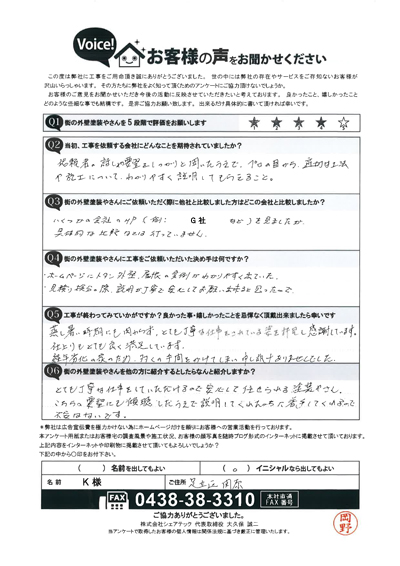 Voice!
お客様の声をお聞かせください
この度は弊社に工事をご用命頂き誠にありがとうございました。世の中には弊社の存在やサービスをご存知ないお客様が
沢山いらっしゃいます。その方たちに弊社をよく知って頂くためのアンケートにご協力頂けないでしょうか。
お客様のご意見をお聞かせいただき今後の活動に反映させていただきたいと考えております。良かったこと、嬉しかったこと
どのような些細な事でも結構です。是非ご協力お願い致します。出来るだけ具体的に書いて頂ければ幸いです。
Q1 街の外壁塗装やさんを5段階で評価をお願いします ★ ★ ★ ★ ☆
Q2 当初、工事を依頼する会社にどんなことを期待されていましたか?
依頼者の話し、要望をしっかりと聞いたうえで、プロの目から、適切な工法
や施工について、わかりやすく説明してもらえること。
Q3 街の外壁塗装やさんにご依頼いただく際に他社と比較しました方はどこの会社と比較しましたか?
いくつかの会社のHP(例: G社 など)を見ましたが、
具体的な比較などは行っていません。
Q4 街の外壁塗装やさんに工事をご依頼いただいた決め手は何ですか?
・ホームページにトタン外壁、屋根の実例がわかりやすく出ていた。
・見積り提出の際、説明が丁寧で安心してお願い出来ると思ったので
Q5 工事が終わってみていかがですか?良かった事・嬉しかったことを忌憚なく頂戴出来ましたら幸いです
蒸し暑い時期にも関わらず、とても丁寧な仕事をされている姿を拝見し感謝しています。
仕上りもとても良く満足しています。
Q6 街の外壁塗装やさんを他の方に紹介するとしたらなんと紹介しますか?
とても丁寧な仕事をしていただけるので安心して任せられる塗装やさん。
こちらの要望にも傾聴したうえで説明してくれたのちに着手してくれるので
不安はないです。
＊弊社は広告宣伝費を極力かけない為にホームページだけを頼りにお客様への営業活動を行っております。
本アンケート用紙またはお客様宅の調査風景や施工状況、お客様の顔写真を随時ブログ形式のインターネットに掲載させて頂いております。
上記内容をインターネットや印刷物に掲載させて頂いてもよろしいでしょうか?
下記の中から〇印をお付下さい。
( )名前を出してもよい (○)イニシャルなら出してもよい
名前 K様 ご住所 足立区
FAX 0438-38-3310 本社直通 FAX番号
ご協力ありがとうございました。
株式会社シェアテック 代表取締役 大久保 誠二
当アンケートで取得したお客様の個人情報は関係法令に基づき厳正に管理いたします。
岡野